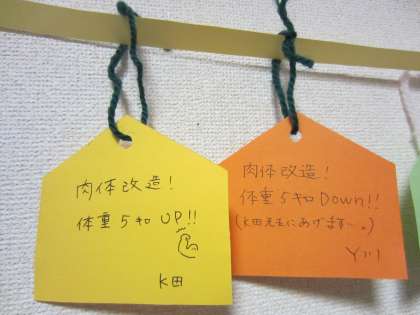 肉体改造!
体重5キロUP!!
K田
肉体改造!
体重5キロDown!!
(K田先生にあげます…。)
Y川